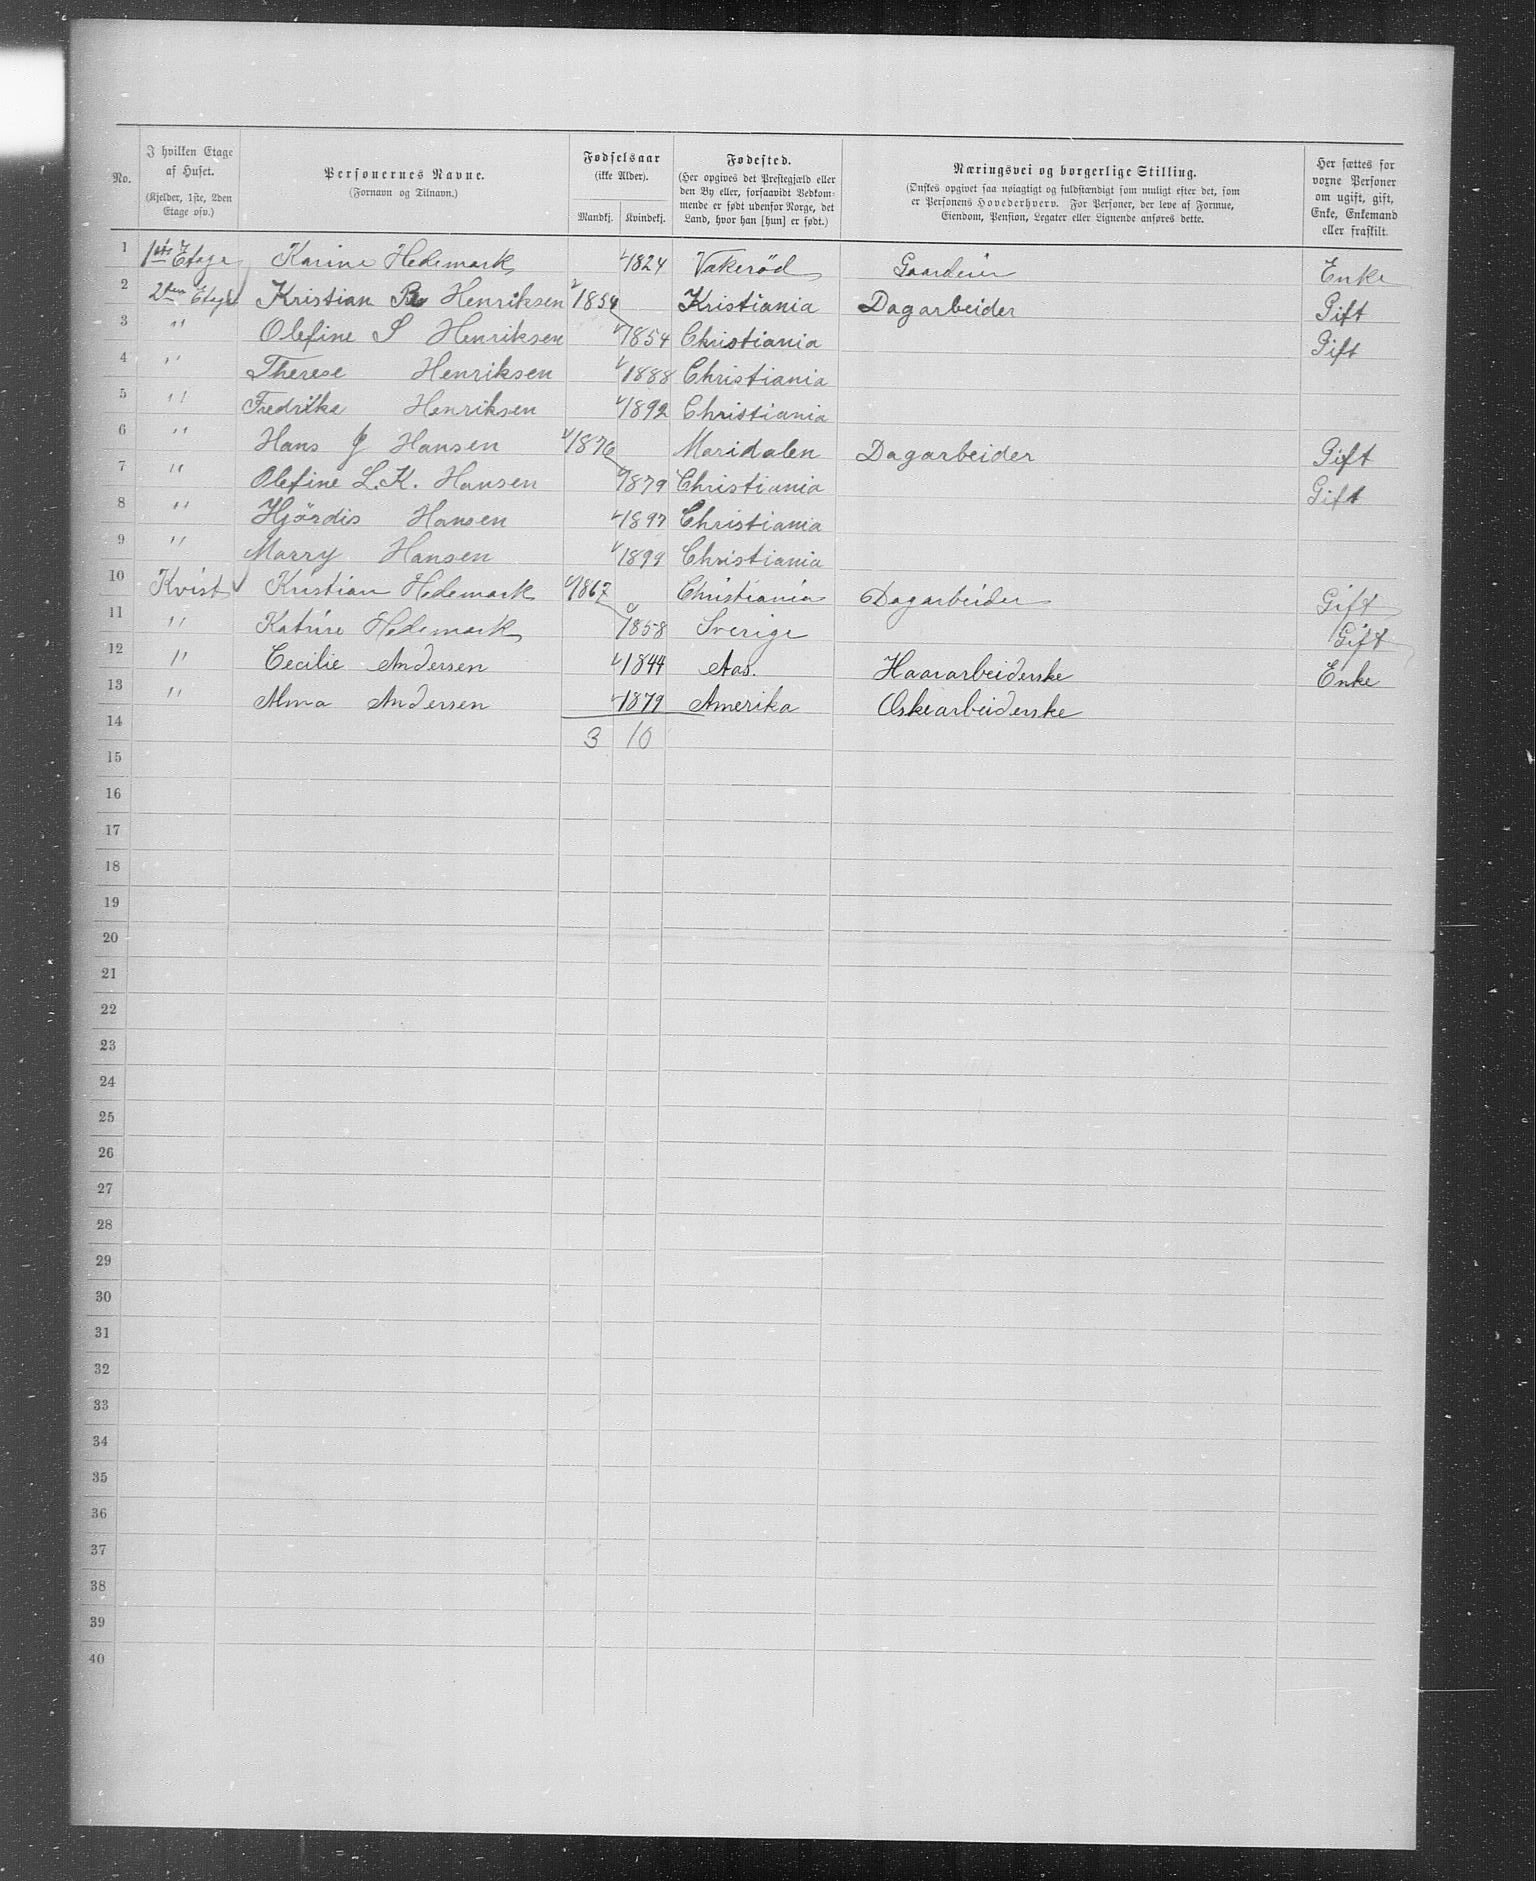 No. | I hvilken Etage af Huset. (Kjelder, 1ste, 2den Etage osv.) | Personernes Navne. (Fornavn og Tilnavn.) | Fødselsaar (ikke Alder). Mandkj. | Kvindekj. | Fødested. (Her opgives det Prestegjæld eller den By eller, forsaavidt Vedkommende er født udenfor Norge, det Land, hvor han [hun] er født.) | Næringsvei og borgerlige Stilling. (Ønskes opgivet saa nøiagtigt og fuldstændigt som muligt efter det, som er Personens Hovederhverv. For Personer, der leve af Formue, Eiendom, Pension, Legater eller Lignende anføres dette. | Her sættes for voxne Personer om ugift, gift, Enke, Enkemand eller fraskilt.
1 1ste Etage Karine Hedemark 1824 Vakerød Gaardeier Enke
2 2den Etage Kristian R Henriksen 1854 Kristiania Dagarbeider Gift
3 " Olefine S Henriksen 1854 Christiania Gift
4 " Therese Henriksen 1888 Christiania
5 " Fredrika Henriksen 1892 Christiania
6 " Hans J Hansen 1876 Maridalen Dagarbeider Gift
7 " Olefine L. K. Hansen 1879 Christiania Gift
8 " Hjördis Hansen 1897 Christiania
9 " Marry Hansen 1899 Christiania
10 Kvist Kristian Hedemark 1867 Christiania Dagarbeider Gift
11 " Katrine Hedemark 1858 Sverige Gift
12 " Cecilie Andersen 1844 Aas. Haararbeiderske Enke
13 " Alma Andersen 1879 Amerika Æskearbeiderske
14 3 10
15
16
17
18
19
20
21
22
23
24
25
26
27
28
29
30
31
32
33
34
35
36
37
38
39
40